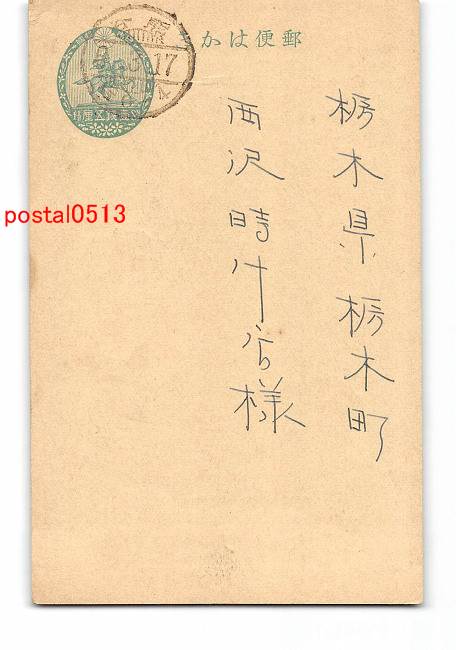 郵便はかき
栃木県栃木町
西沢時計店様
17
postal0513